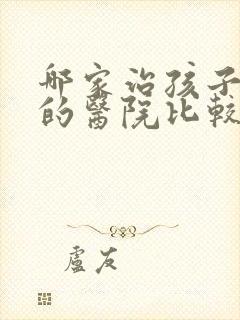 哪家治孩子
的醫院比較
盧友